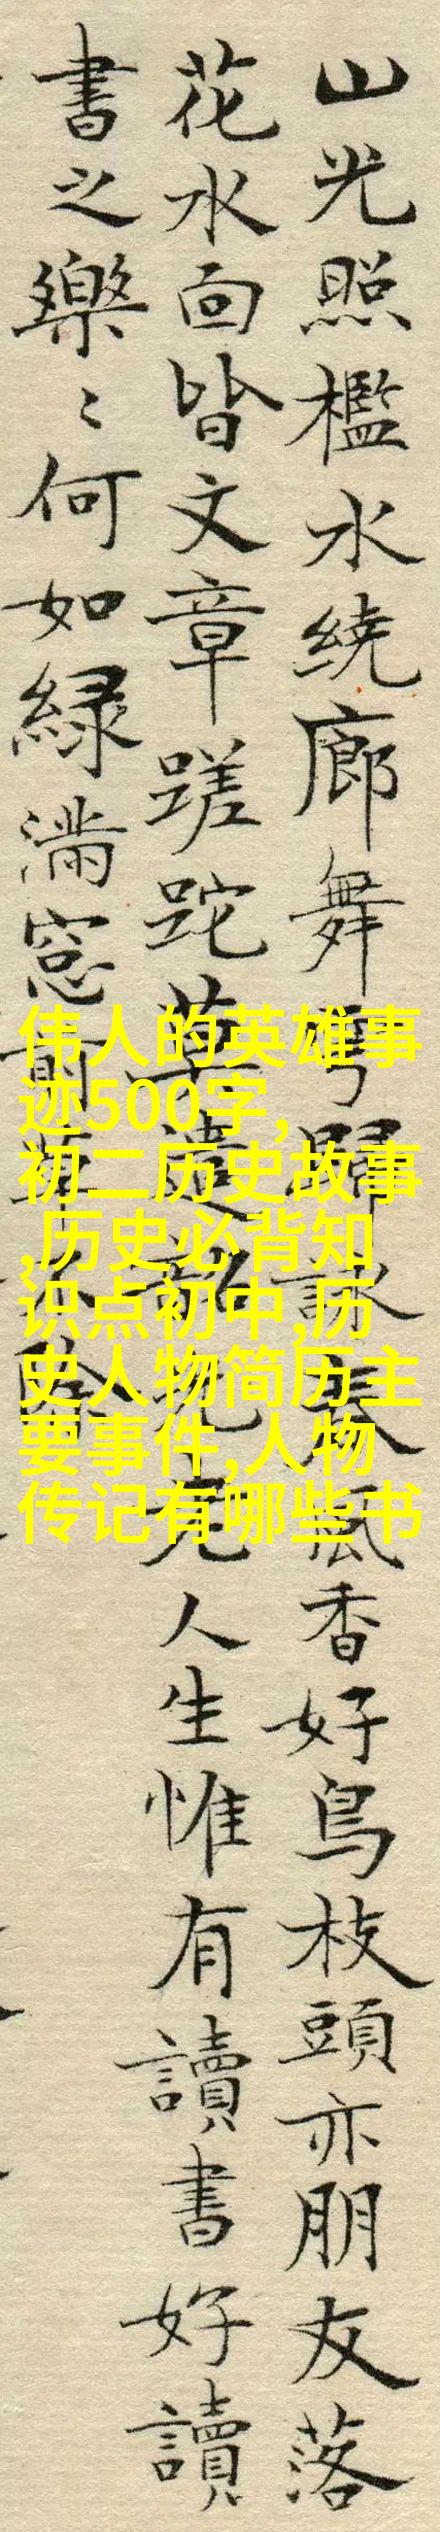 山光照檻水绕廊舞雩歸詠春風香好鳥枝頭亦朋友落
花水面皆文章蹉跎莫遣韶光老人生惟有讀書好讀
書之樂〻何如綠滿窓前草不除
伟人的英雄事
迹500字,
初二历史故事
,历史必背知
识点初中,历
史人物简历主
要事件,人物
传记有哪些书